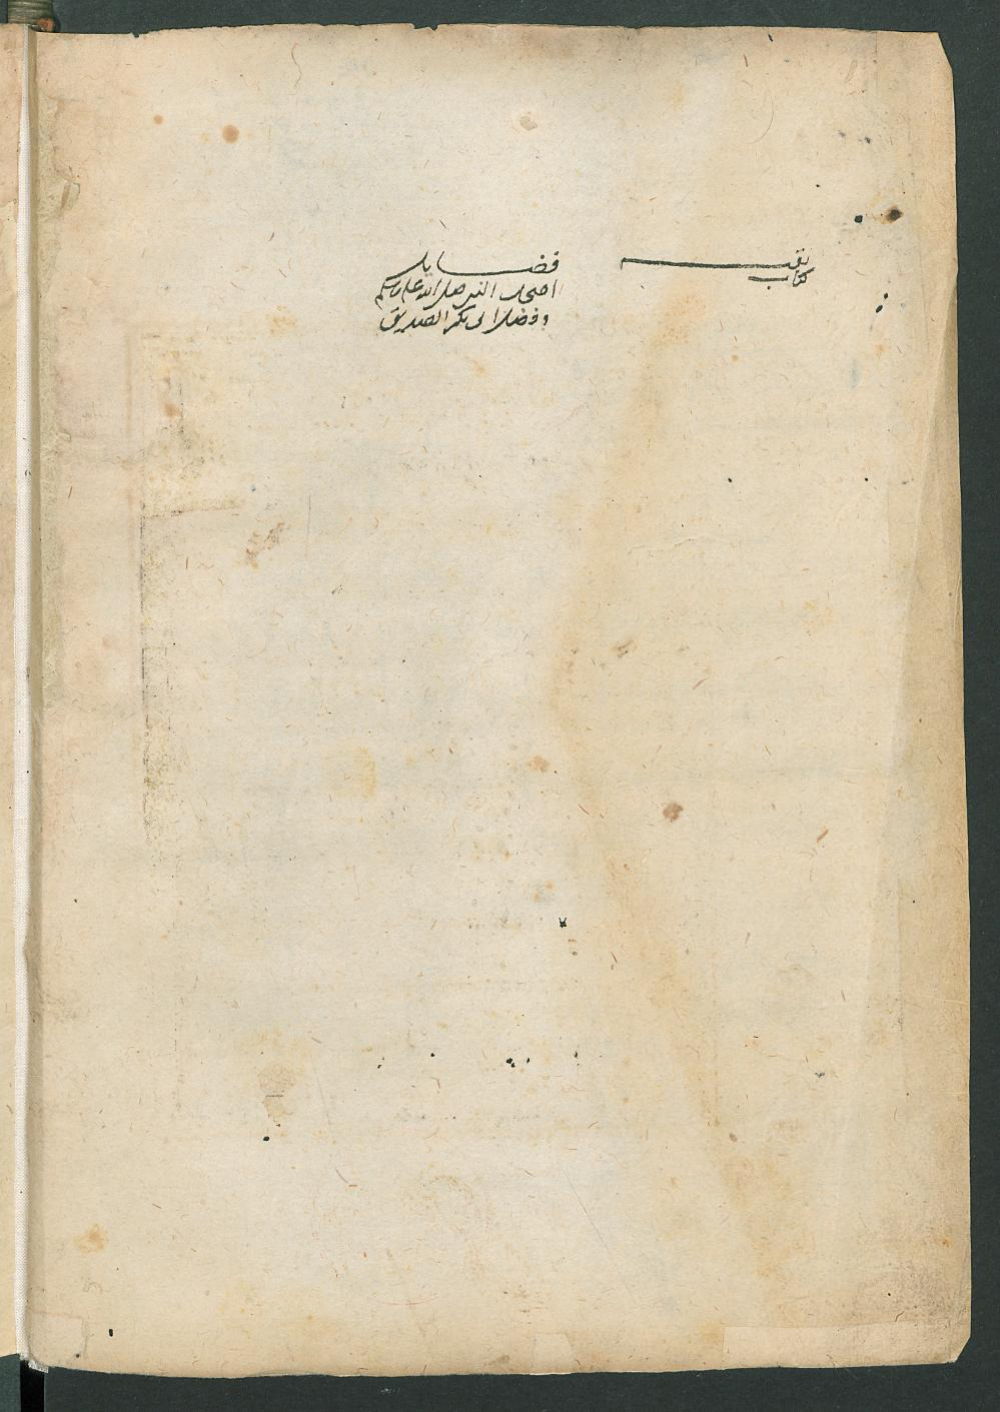 بقية
كتاب
فضايل
اصحاب النبي صلى الله عليه وسلم
وفضل ابى بكر الصديق